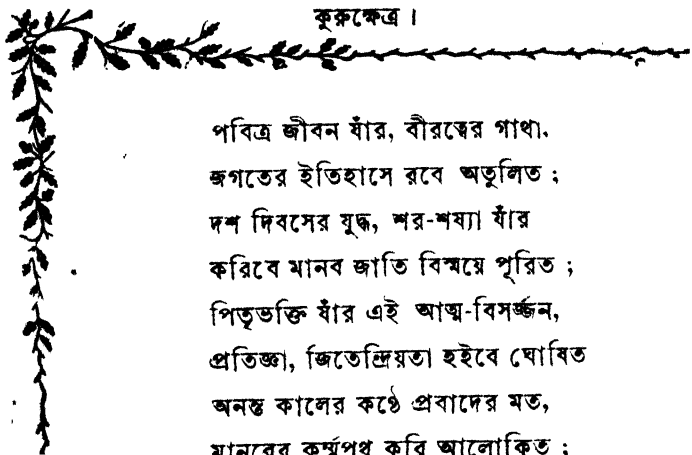 কুরুক্ষেত্র।
পবিত্র জীবন যাঁর, বীরত্বের গাথা.
জগতের ইতিহাসে রবে অতুলিত ;
দশ দিবসের যুদ্ধ, শর-শয্যা যাঁর
করিবে মানব জাতি বিস্ময়ে পূরিত ;
পিতৃভক্তি যাঁর এই আত্ম-বিসর্জ্জন,
প্রতিজ্ঞা, জিতেন্দ্রিয়তা হইবে ঘোষিত
অনন্ত কালের কণ্ঠে প্রবাদের মত,
মানবের কর্ম্মপথ করি আলোকিত ;